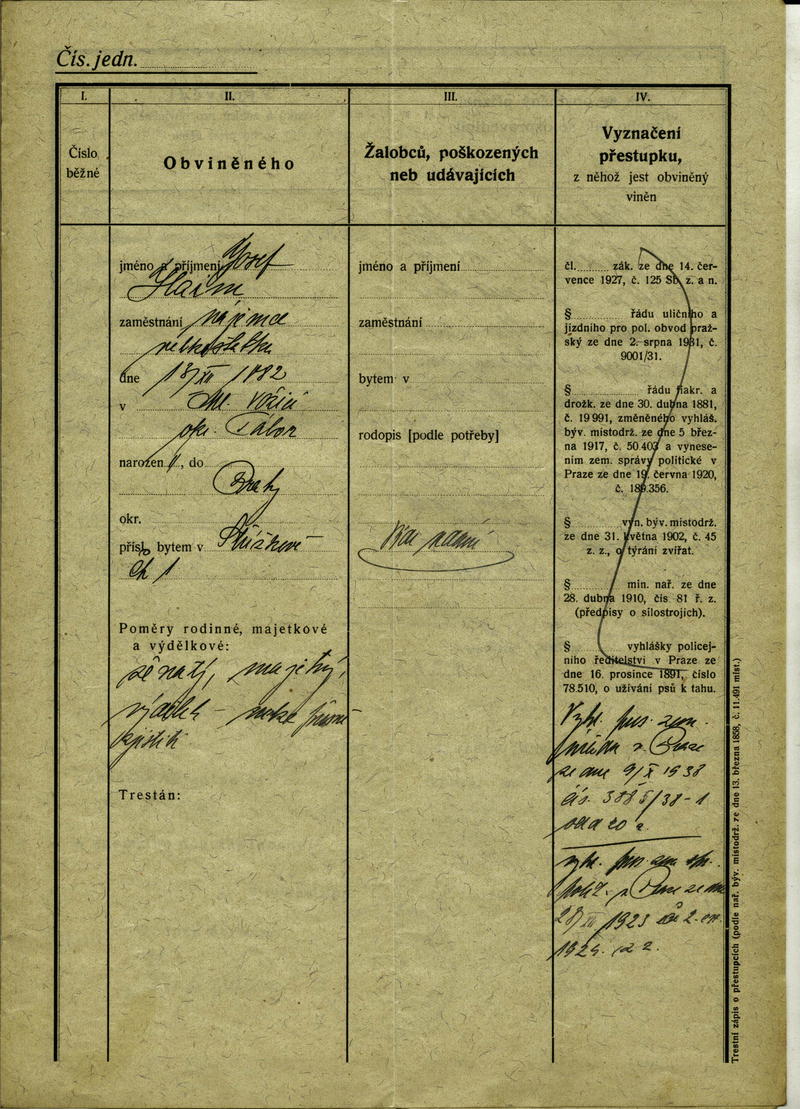 Čís. jedn.
I.
II.
III.
IV.
Číslo
běžné
Obviněného
Žalobců, poškozených
neb udávajících
Vyznačení
přestupku,
z něhož jest obviněný
viněn
jméno a příjmení Josef
zaměstnání nájemce
dne 18/XII 1882
v Ml. Vožici
okr. Tábor
narozen ý, do
Prahy
okr.
přísl. bytem v
čp 1
Poměry rodinné, majetkové
a výdělkové:
ženatý, majetný,
výdělek – nelze
zjistiti
Trestán:
jméno a příjmení
zaměstnání
bytem v
rodopis [podle potřeby]
čl. zák. ze dne 14. čer-
vence 1927, č. 125 Sb. z. a n.
§ řádu uličního a
jízdního pro pol. obvod praž-
ský ze dne 2. srpna 1931, č.
9001/31.
§ řádu fiakr. a
drožk. ze dne 30. dubna 1881,
č. 19 991, změněného vyhláš.
býv. místodrž. ze dne 5 břez-
na 1917, č. 50.403 a vynese-
ním zem. správy politické v
Praze ze dne 19. června 1920,
č. 189.356.
§ výn. býv. místodrž.
ze dne 31. května 1902, č. 45
z. z., o týrání zvířat.
§ min. nař. ze dne
28. dubna 1910, čís 81 ř. z.
(předpisy o silostrojích).
§ vyhlášky policej-
ního ředitelství v Praze ze
dne 16. prosince 1891, číslo
78.510, o užívání psů k tahu.
Vyhl. zem.
úřadu v Praze
ze dne 9/X 1938
čís.
vyhl. zem. spr.
polit. v Praze ze dne
1923
Trestní zápis o přestupcích (podle nař. býv. místodrž. ze dne 13. března 1858, č. 11.491 míst.)